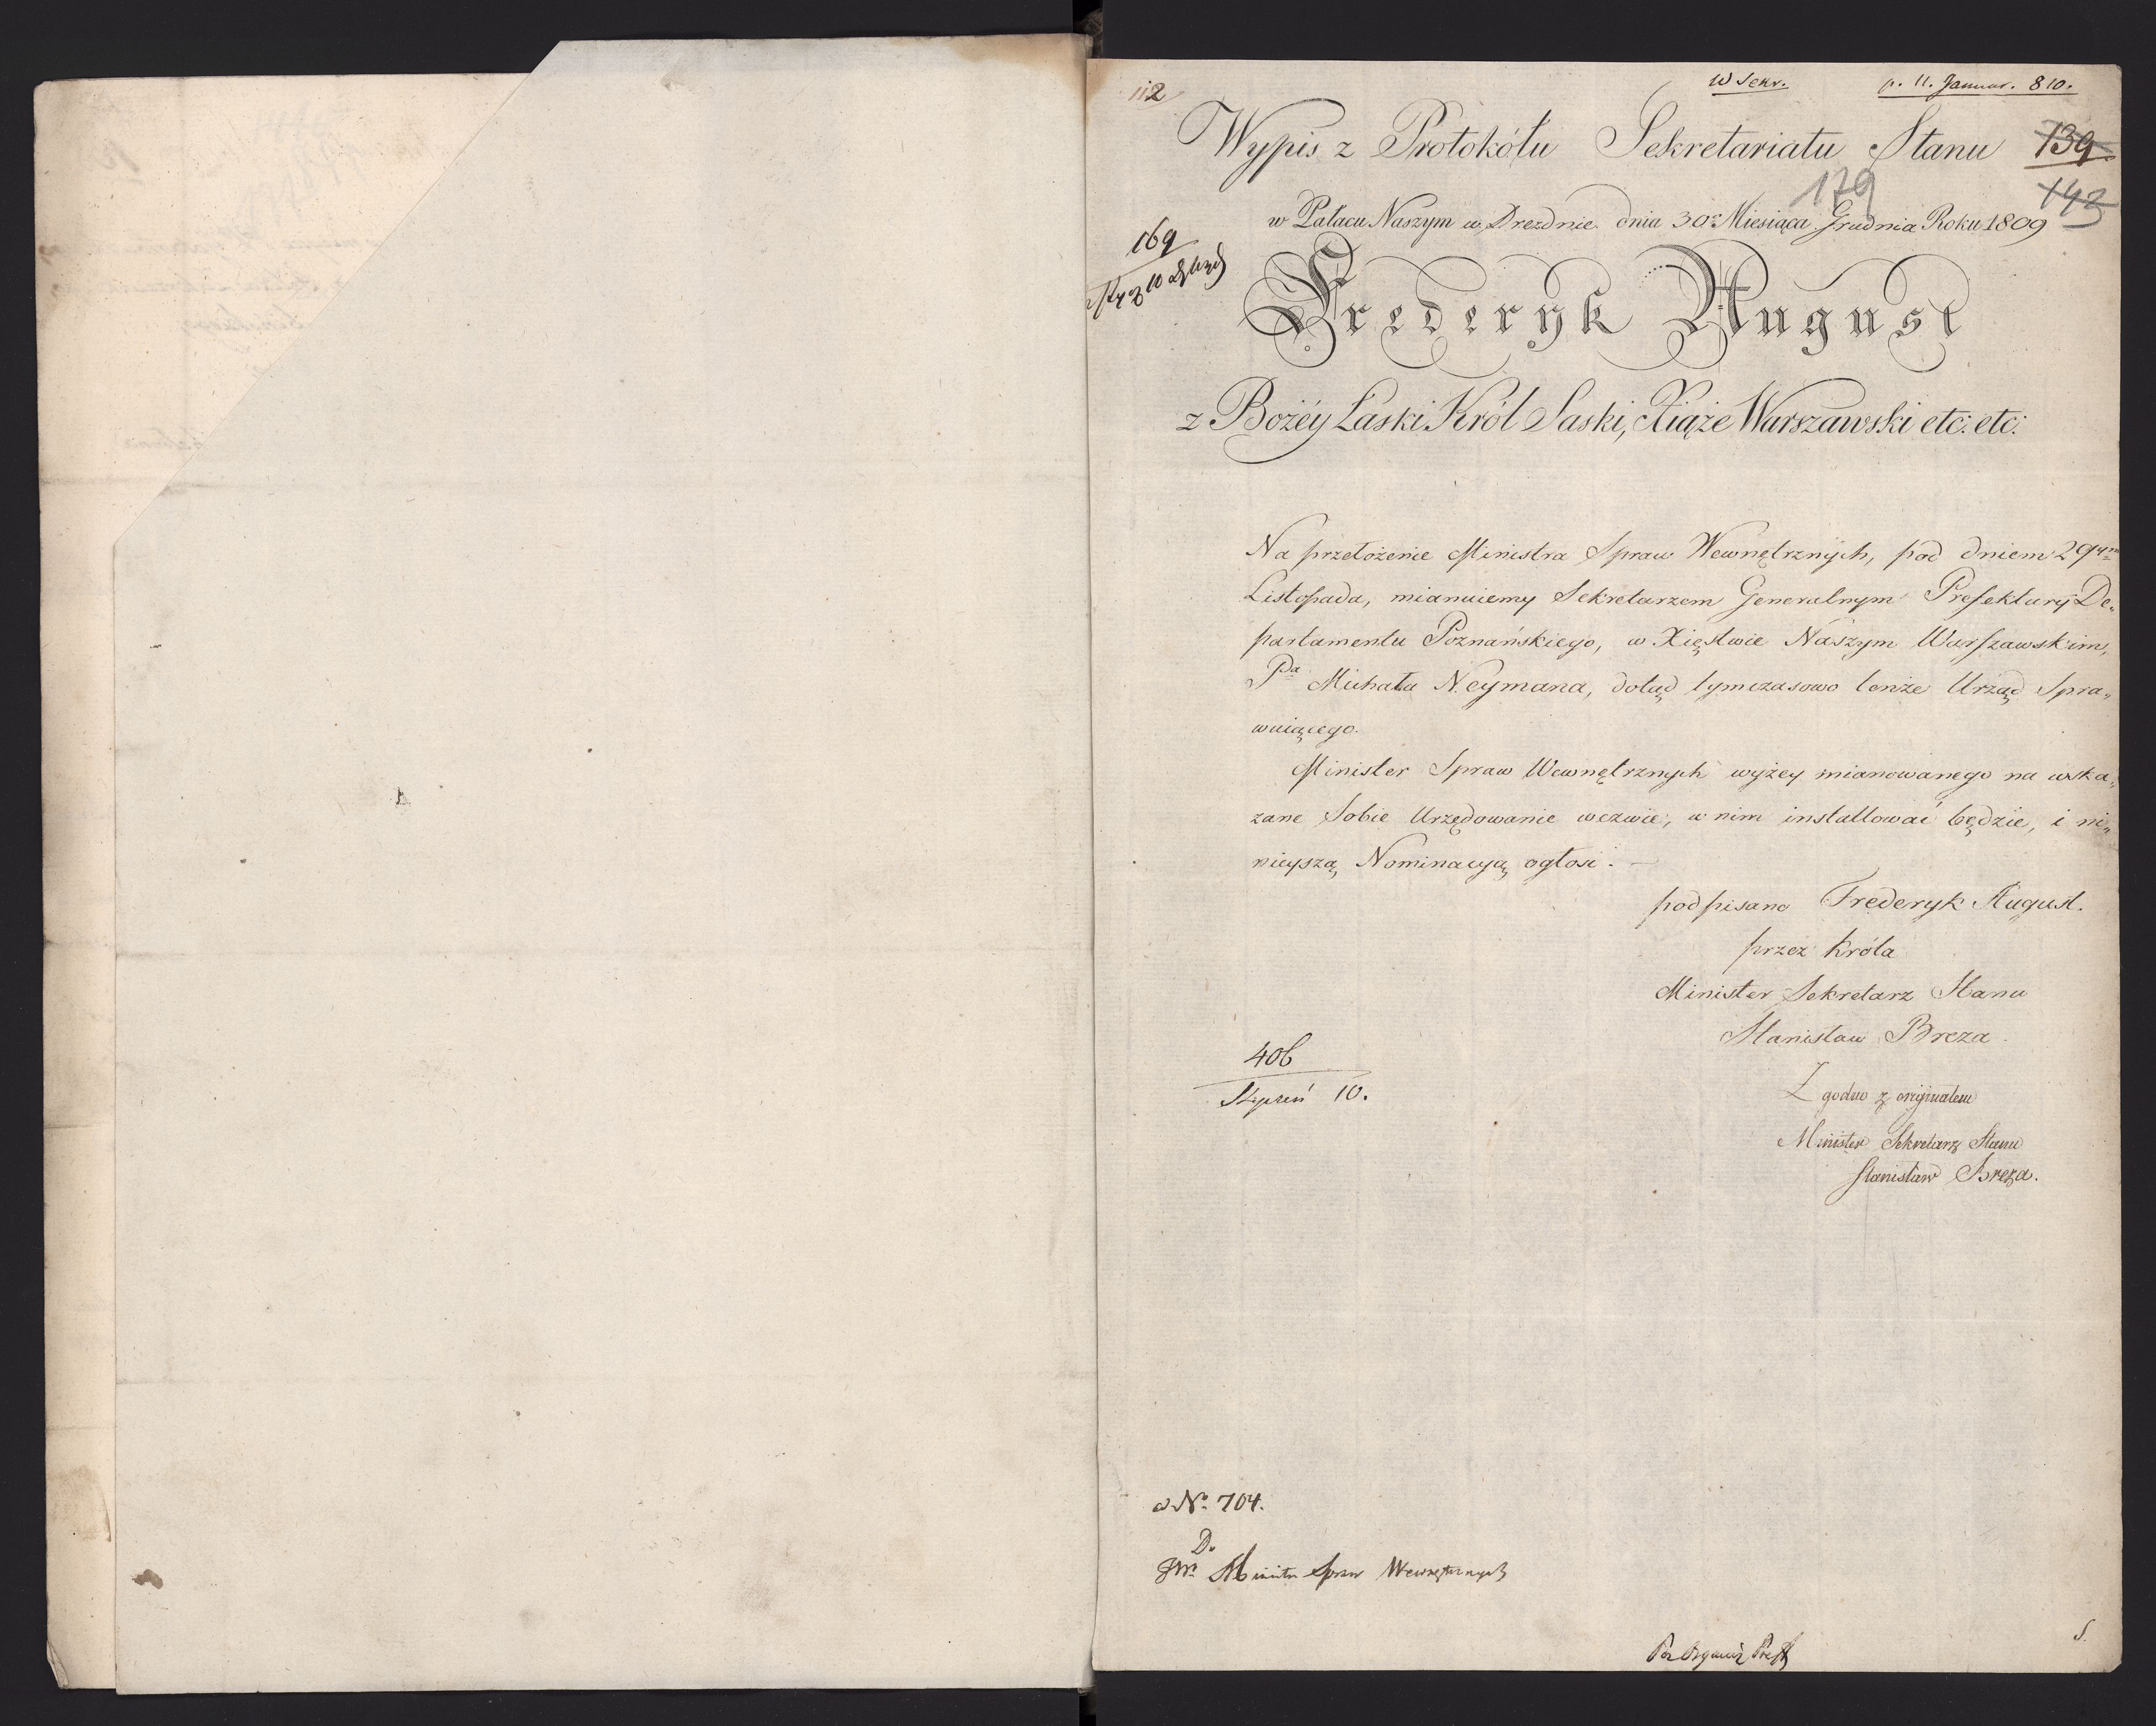 112
W Sekr. p. 11. Januar. 810.
Wypis z Protokółu Sekretariatu Stanu 139.
179 142
w Pałacu Naszym w Dreźdnie dnia 30° Miesiąca Grudnia Roku 1809
169
10
Frederyk August
z Bożéy Łaski Król Saski, Xiąże Warszawski etc: etc:
Na przełożenie Ministra Spraw Wewnętrznych, pod dniem 29ym
Listopada, mianuiemy Sekretarzem Generalnym Prefektury De„
partamentu Poznańskiego, w Xięstwie Naszym Warszawskim,
Pa Michała Neymana, dotąd tymczasowo tenże Urząd Spra„
wuiącego.
Minister Spraw Wewnętrznych wyżey mianowanego na wska„
zane Sobie Urzędowanie wezwie, w nim installować będzie, i ni„
nieyszą Nominacyą ogłosi. —
podpisano Frederyk August.
przez Króla
Minister Sekretarz Stanu
Stanisław Breza.
406
Styczeń 10.
Zgodno z oryginałem
Minister Sekretarz Stanu
Stanisław Breza.
N° 704.
Do
JW° Ministra Spraw Wewnętrznych
S.